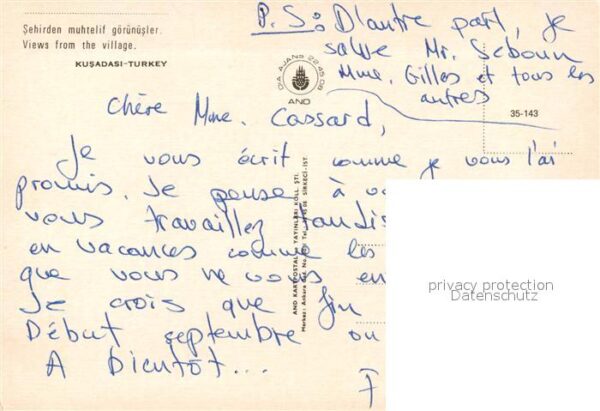 Şehirden muhtelif görünüşler.
Views from the village.
KUŞADASI-TURKEY
P.S: D'autre part, je
salue Mr. Seboun
Mme. Gilles et tous les
autres
AND
35-143
Chère Mme. Cassard,
Je vous écrit comme je vous l'ai
promis. Je pense à
vous travaillez tandis
en vacances comme les
que vous ne vous en
Je crois que fin
Début septembre ou
A Bientôt...
F
AND KARTPOSTAL YAYINLARI KOLL. ŞTİ.
privacy protection
Datenschutz